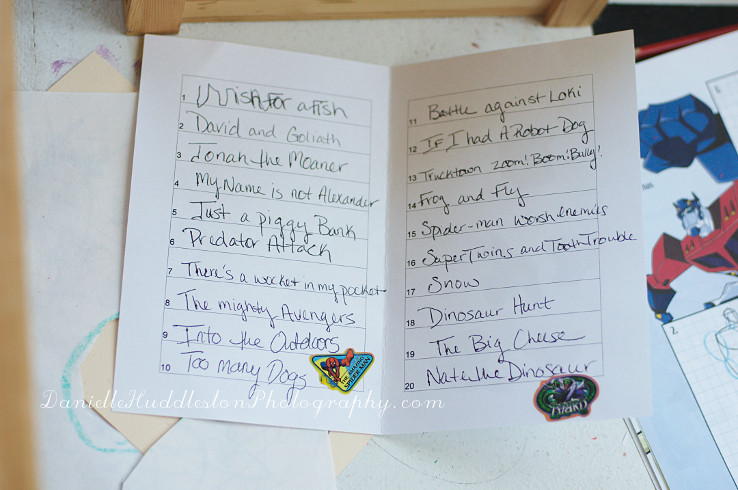 1 I Wish for a fish
2 David and Goliath
3 Jonah the Moaner
4 My Name is not Alexander
5 Just a piggy Bank
6 Predator Attack
7 There's a wocket in my pocket
8 The mighty Avengers
9 Into the Outdoors
10 Too Many Dogs
11 Battle against Loki
12 If I had A Robot Dog
13 Trucktown Zoom! Boom! Bully!
14 Frog and Fly
15 Spider-man Worsh Enemies
16 Super Twins and Tooth Trouble
17 Snow
18 Dinosaur Hunt
19 The Big Cheese
20 Nate the Dinosaur
DanielleHuddlestonPhotography.com
2.